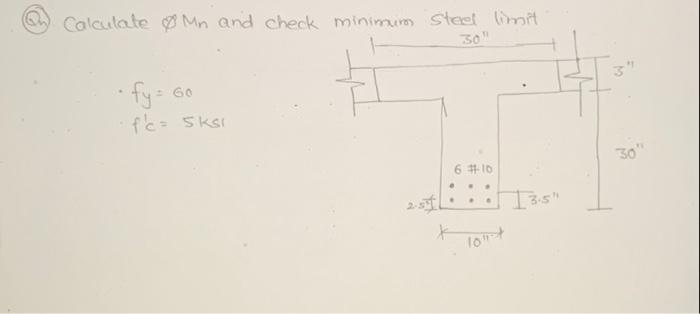 Qn Calculate φ Mn and check minimum steel limit
30"
3"
· fy = 60
· f'c = 5 ksi
30"
6 #10
2.5"
3.5"
10"